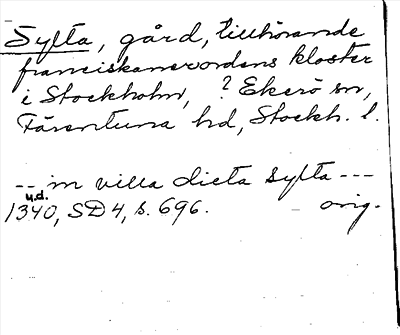 Sylta, gård, tillhörande
franciskanerordens kloster
i Stockholm, ? Ekerö sn,
Färentuna hd, Stockh. l.
-- in villa dicta Sylta ---
u.d.
1340, SD 4, s. 696. orig.